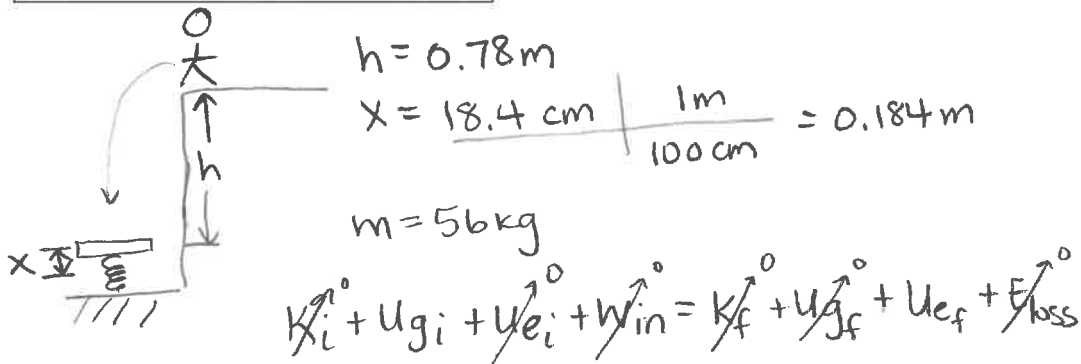 h = 0.78m
x = 18.4 cm | 1m / 100 cm = 0.184 m
h
m = 56kg
x
Ki⁰ + Ugi + Uei⁰ + Win⁰ = Kf⁰ + Ugf⁰ + Uef + Eloss⁰